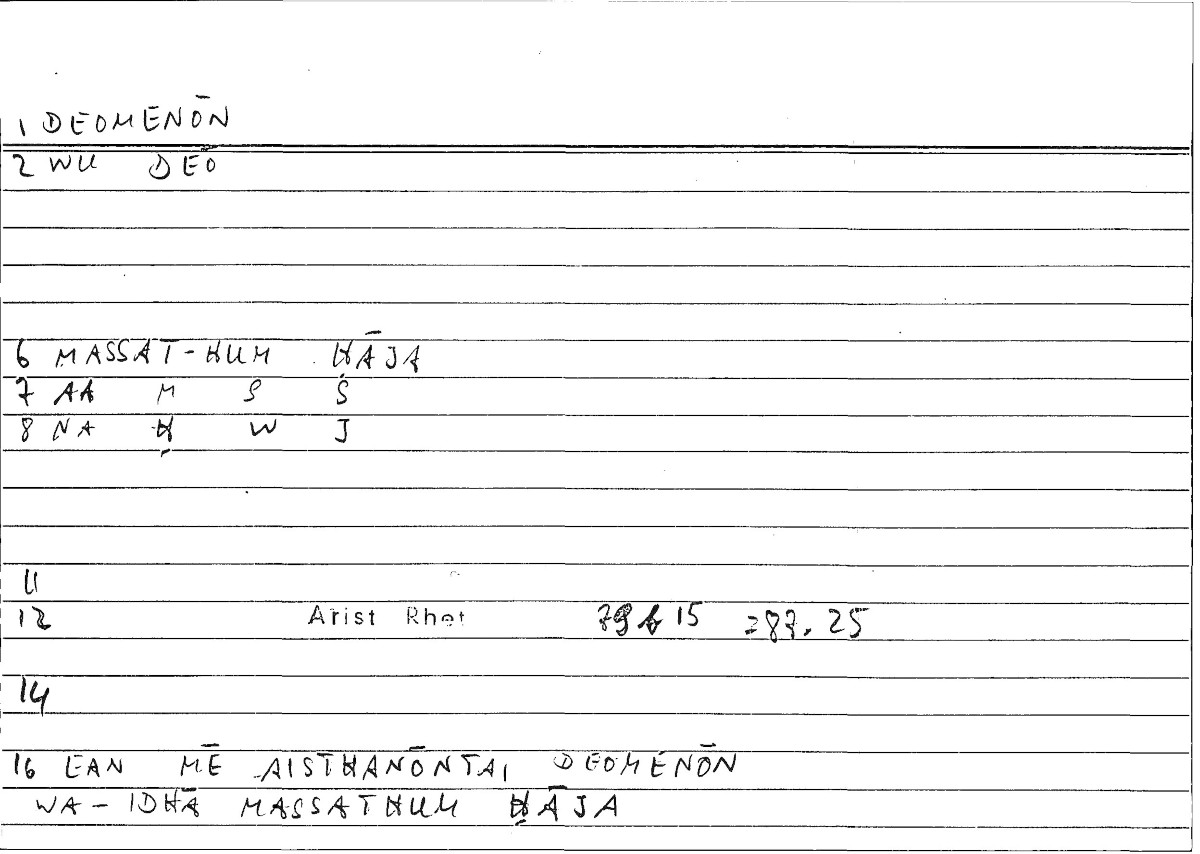 1 DEOMENŌN
2 WU DEO
6 MASSAT-HUM ḤĀJA
7 AA M S S
8 NA Ḥ W J
11
12 Arist Rhet 79b15 =87.25
14
16 EAN MĒ AISTHANŌNTAI DEOMENŌN
WA-IDHĀ MASSATHUM ḤĀJA